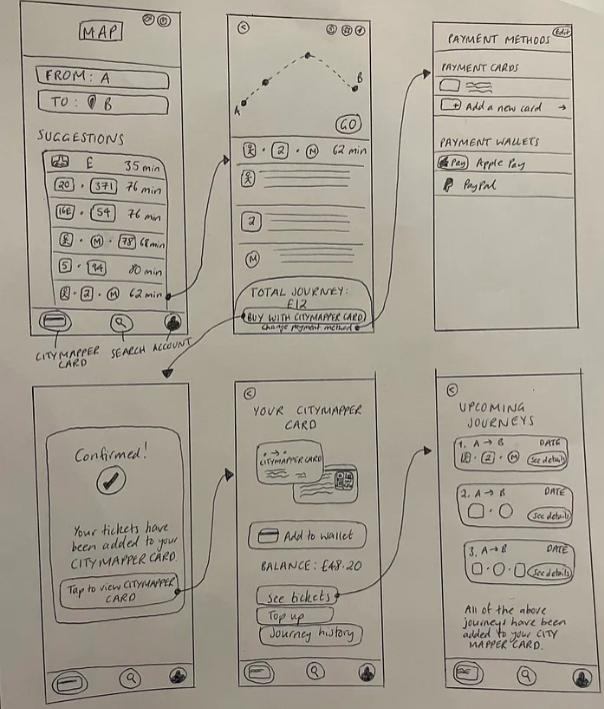 MAP
FROM: A
TO: B
SUGGESTIONS
£ 35 min
20 · 371 76 min
16E · 54 76 min
M · 78 68 min
5 · 94 80 min
2 · M 62 min
CITYMAPPER
CARD
SEARCH
ACCOUNT
A
B
GO
2 · M 62 min
2
M
TOTAL JOURNEY:
£12
BUY WITH CITYMAPPER CARD
Change payment method
PAYMENT METHODS
Edit
PAYMENT CARDS
+ Add a new card →
PAYMENT WALLETS
Pay Apple Pay
P PayPal
Confirmed!
Your tickets have
been added to your
CITYMAPPER CARD.
Tap to view CITYMAPPER
CARD
YOUR CITYMAPPER
CARD
CITYMAPPER CARD
Add to wallet
BALANCE: £48.20
See tickets
Top up
Journey history
UPCOMING
JOURNEYS
1. A → B DATE
· 2 · M See details
2. A → B DATE
See details
3. A → B DATE
See details
All of the above
journeys have been
added to your CITY
MAPPER CARD.